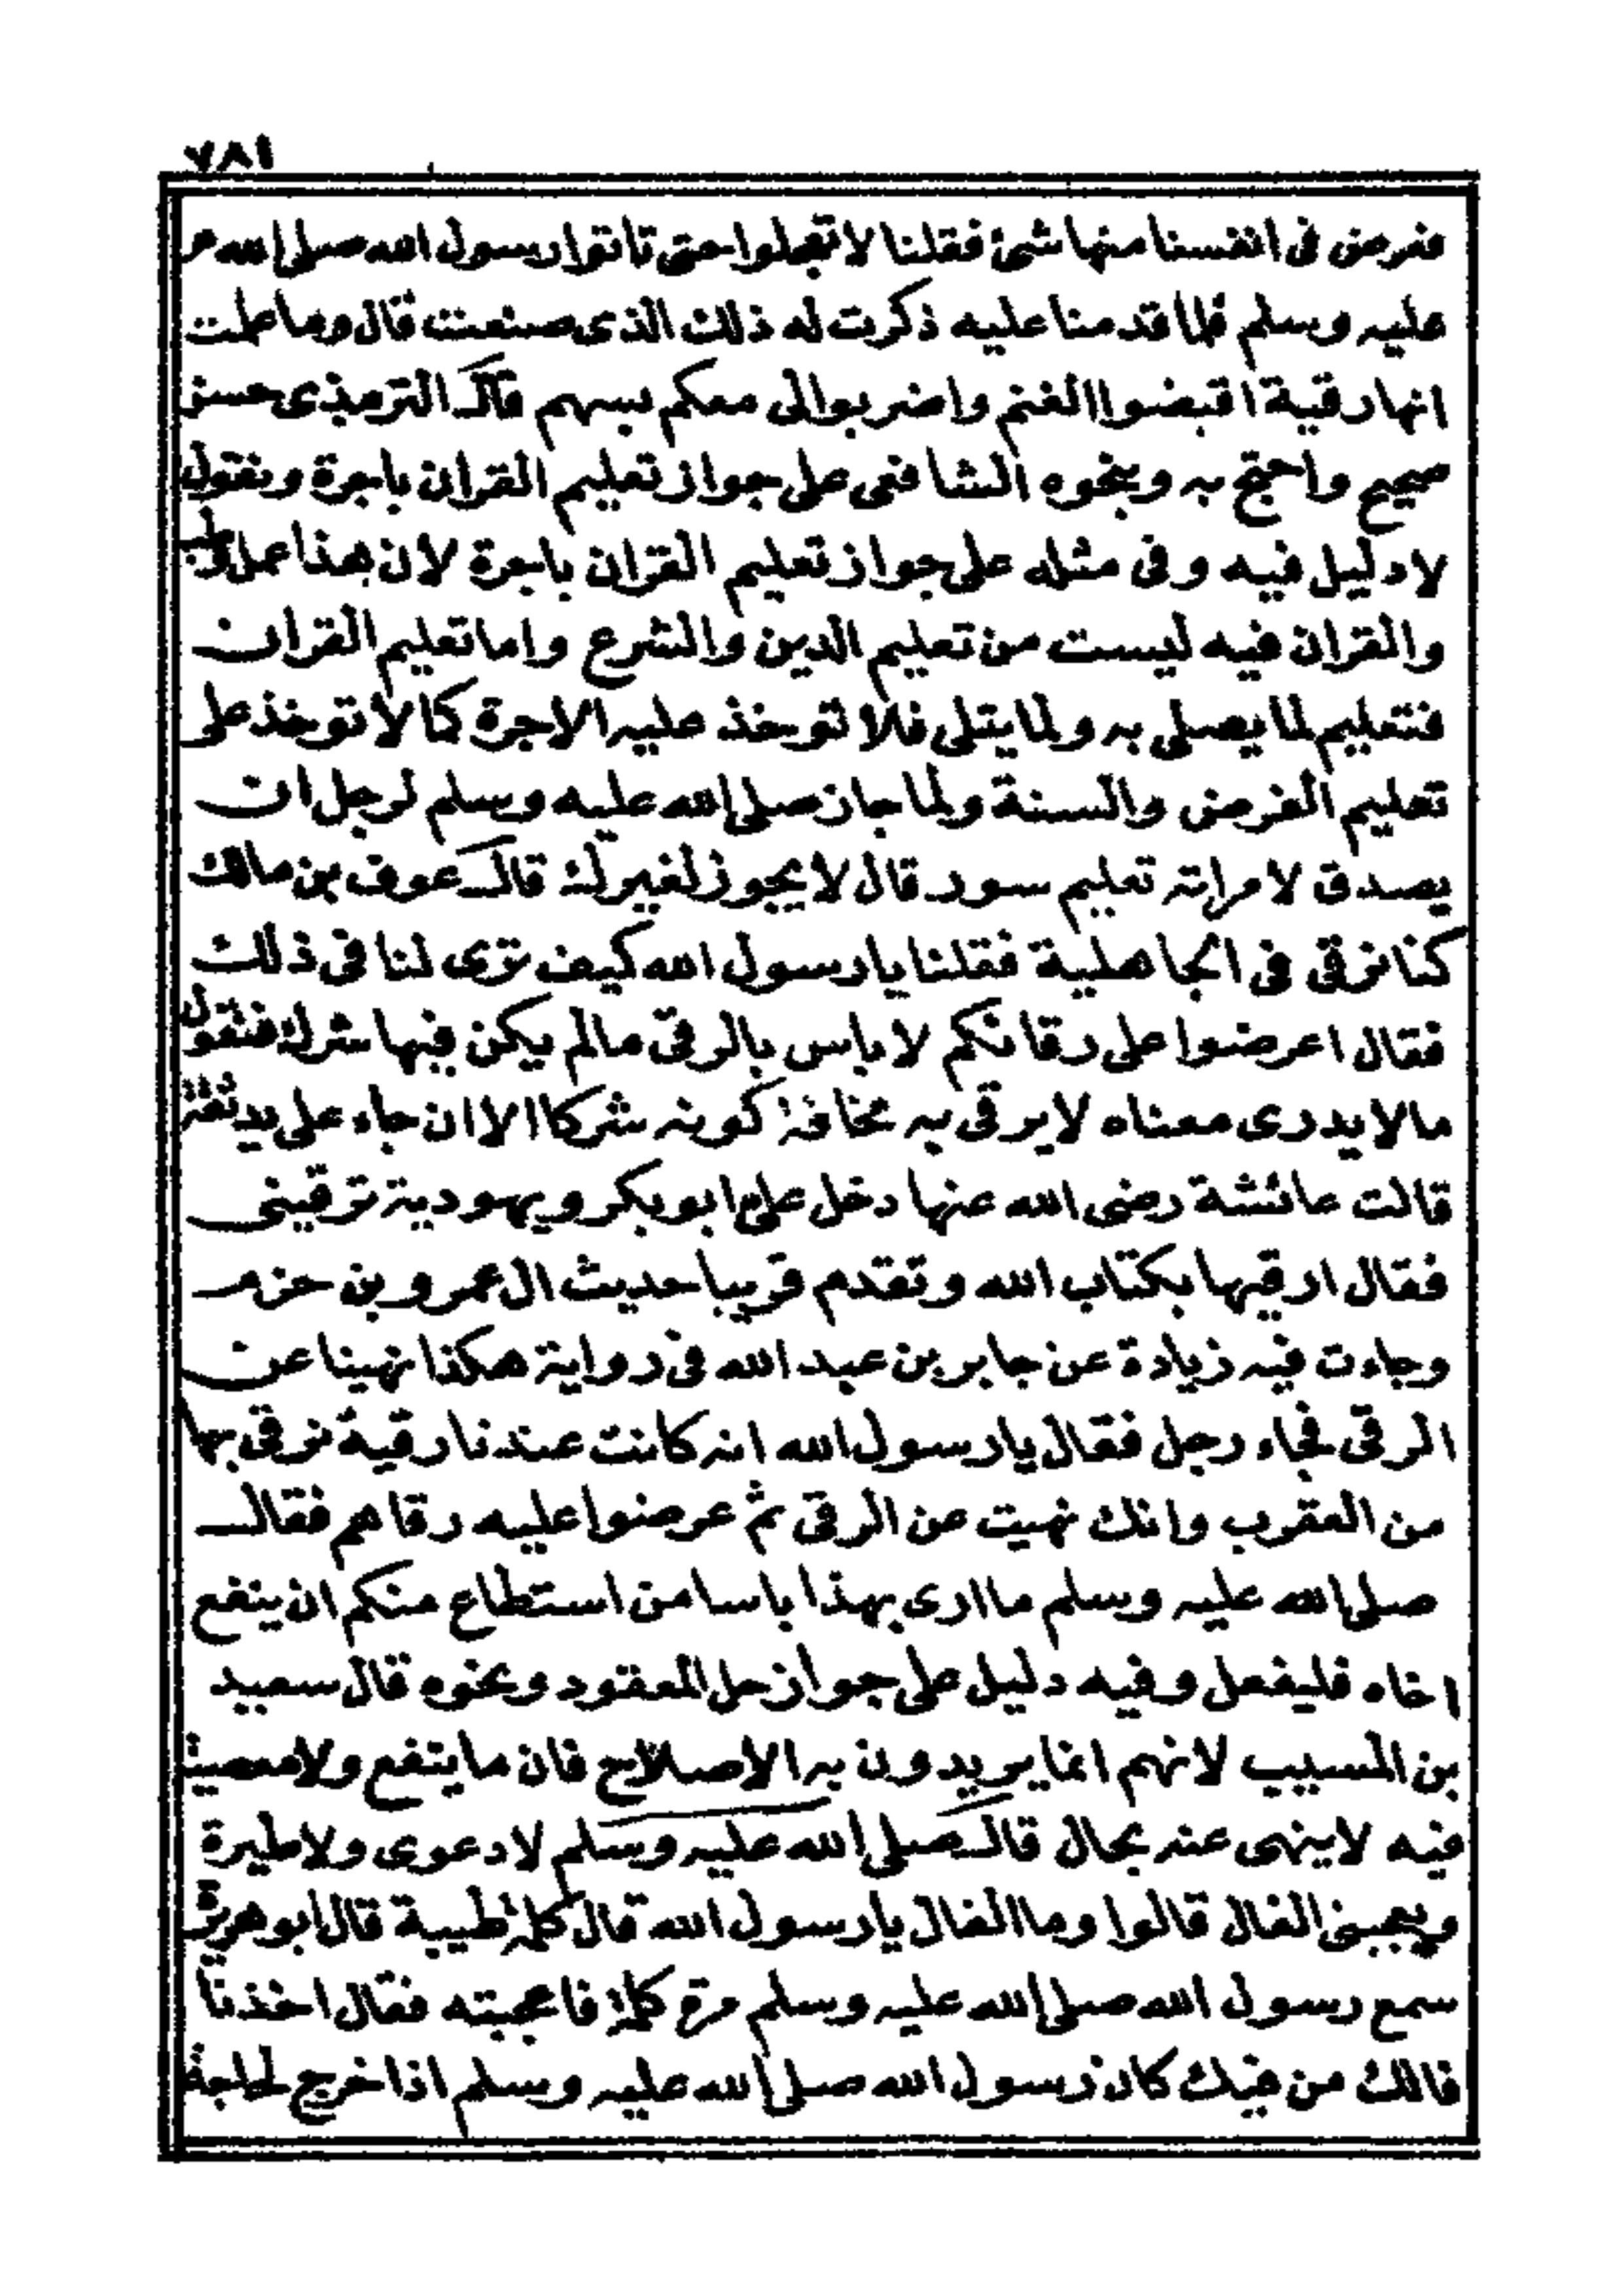 ٧٨١
فعرض فى انفسنا منها شئ فقلنا لا تعجلوا حتى تاتوا رسول الله صلى الله
عليه وسلم فلما قدمنا عليه ذكرت له ذلك الذى صنعت قال وما علمت
انها رقية اقبضوا الغنم واضربوا لى معكم بسهم قال الترمذى حسن
صحيح واحتج به وبنحوه الشافعى على جواز تعليم القران باجرة ونقول
لا دليل فيه وفى مثله على جواز تعليم القران باجرة لان هذا عمل وطب
والقران فيه ليست من تعليم الدين والشرع واما تعليم القران
فتعليم لما يصلى به ولما يتلى فلا توخذ عليه الاجرة كما لا توخذ على
تعليم الفرض والسنة ولما جاز صلى الله عليه وسلم لرجل ان
يصدق لامراته تعليم سور قال لا يجوز لغيرك قال عوف بن مالك
كنا نرقى فى الجاهلية فقلنا يا رسول الله كيف ترى لنا فى ذلك
فقال اعرضوا على رقائكم لا باس بالرقى مالم يكن فيها شرك فنقول
ما لا يدرى معناه لا يرقى به مخافة كونه شركا الا ان جاء على يد ثقة
قالت عائشة رضى الله عنها دخل على ابو بكر ويهودية ترقينى
فقال ارقيها بكتاب الله وتقدم قريبا حديث ال عمرو بن حزم
وجاءت فيه زيادة عن جابر بن عبد الله فى رواية هكذا نهينا عن
الرقى فجاء رجل فقال يا رسول الله انه كانت عندنا رقية نرقى بها
من العقرب وانك نهيت عن الرقى ثم عرضوا عليه رقاهم فقال
صلى الله عليه وسلم ما ارى بهذا باسا من استطاع منكم ان ينفع
اخاه فليفعل وفيه دليل على جواز حل المعقود ونحوه قال سعيد
بن المسيب لانهم انما يريدون به الاصلاح فان ما ينفع ولا معصية
فيه لا ينهى عنه بحال قال صلى الله عليه وسلم لا دعوى ولا طيرة
ويعجبنى الفال قالوا وما الفال يا رسول الله قال كلمة طيبة قال ابو هريرة
سمع رسول الله صلى الله عليه وسلم كلمة فاعجبته فقال اخذنا
فالك من فيك كان رسول الله صلى الله عليه وسلم اذا خرج لحاجة